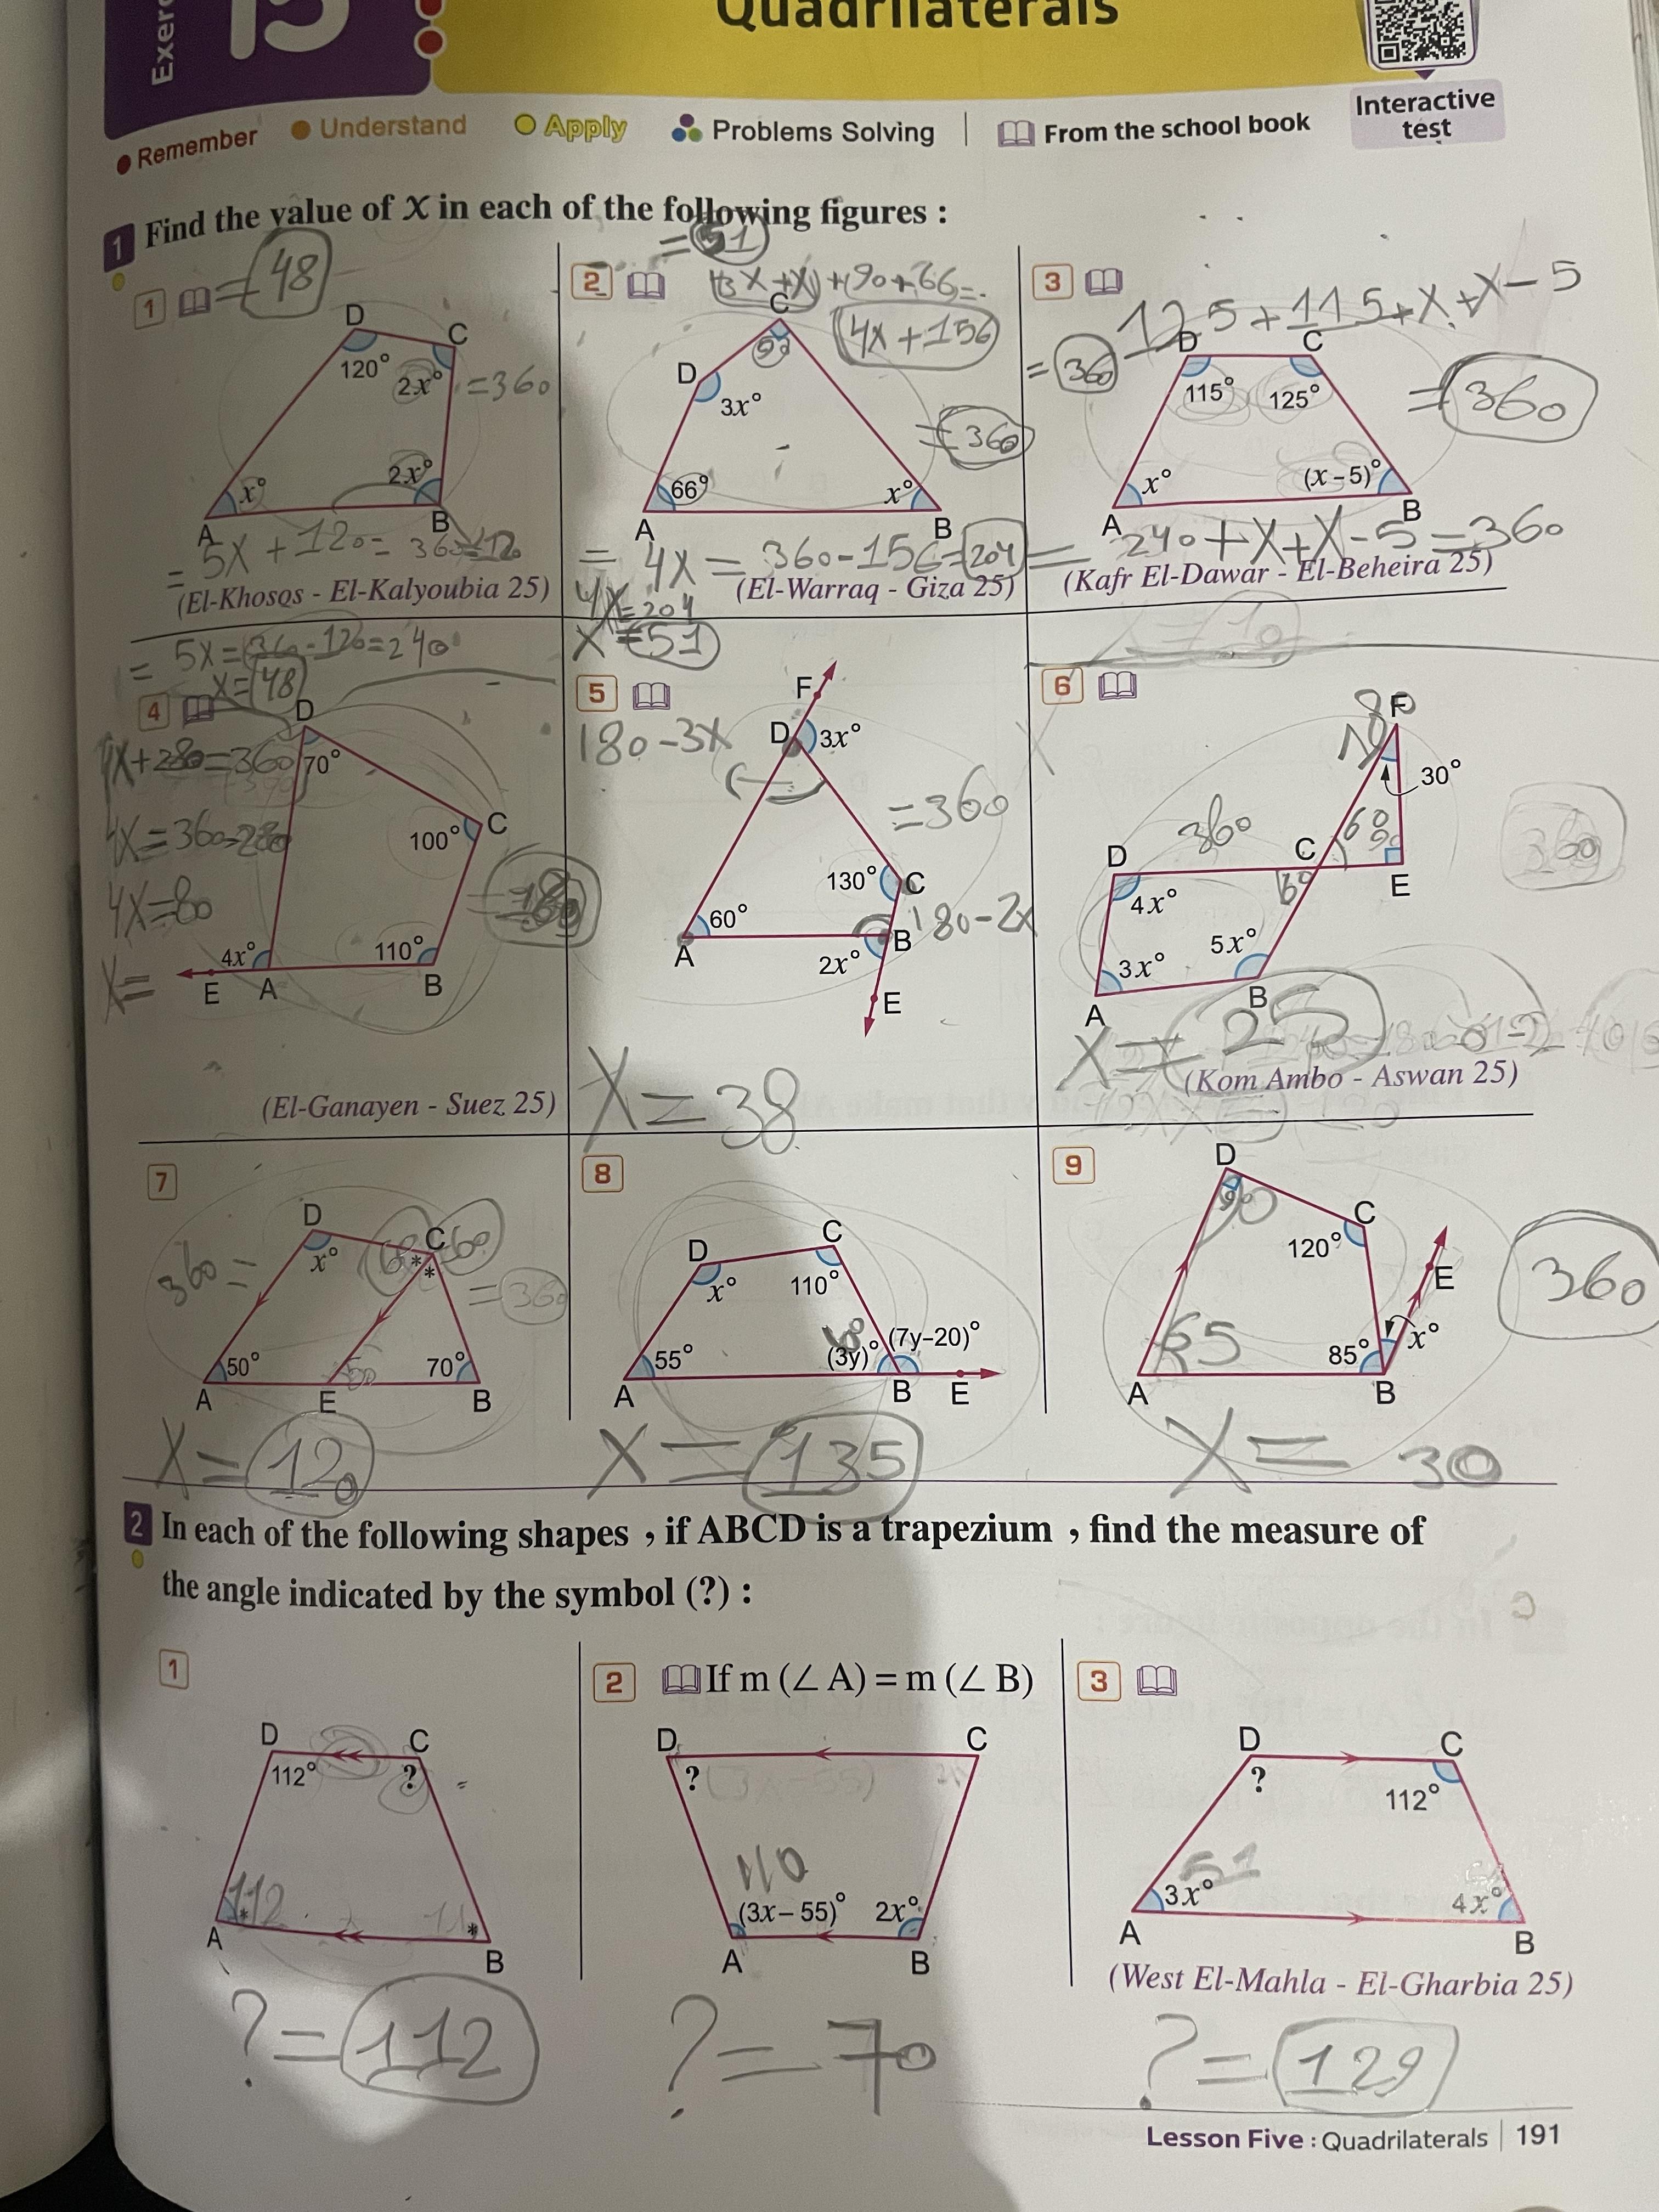 Exerc
15
Quadrilaterals
Remember
Understand
Apply
Problems Solving
From the school book
Interactive
test
1 Find the value of x in each of the following figures :
1
= 48
D
C
120°
2x°
= 360
x°
2x°
A
B
5x + 120 =
(El-Khosos - El-Kalyoubia 25)
= 5x =
= 240
x = 48
2
= 51
(3x + x) + 90 + 66 =
C
4x + 156
90
D
3x°
= 360
66°
x°
A
B
= 4x = 360 - 156 = 204
(El-Warraq - Giza 25)
4x = 204
x = 51
3
125 + 115 + x + x - 5
= 360
D
C
115°
125°
= 360
x°
(x-5)°
A
B
= 240 + x + x - 5 = 360
(Kafr El-Dawar - El-Beheira 25)
4
D
4x + 280 = 360
70°
4x = 360 - 280
100°
C
4x = 80
4x°
110°
x =
E
A
B
(El-Ganayen - Suez 25)
5
F
180 - 3x
D
3x°
= 360
130°
C
60°
180 - 2x
A
B
2x°
E
x = 38
6
F
30°
360
60
90
D
C
E
4x°
60
5x°
3x°
B
A
x = 25
(Kom Ambo - Aswan 25)
7
D
C
360 =
x°
60
* *
60
= 360
50°
50
70°
A
E
B
x = 120
8
D
C
x°
110°
60
(7y-20)°
55°
(3y)°
A
B
E
x = 135
9
D
90
C
120°
E
360
65
85°
x°
A
B
x = 30
2 In each of the following shapes , if ABCD is a trapezium , find the measure of
the angle indicated by the symbol (?) :
1
D
C
112°
?
112
*
*
A
B
? = 112
2 If m (∠ A) = m (∠ B)
D
C
?
110
(3x - 55)°
2x°
A
B
? = 70
3
D
C
?
112°
51
3x°
4x°
A
B
(West El-Mahla - El-Gharbia 25)
? = 129
Lesson Five : Quadrilaterals | 191